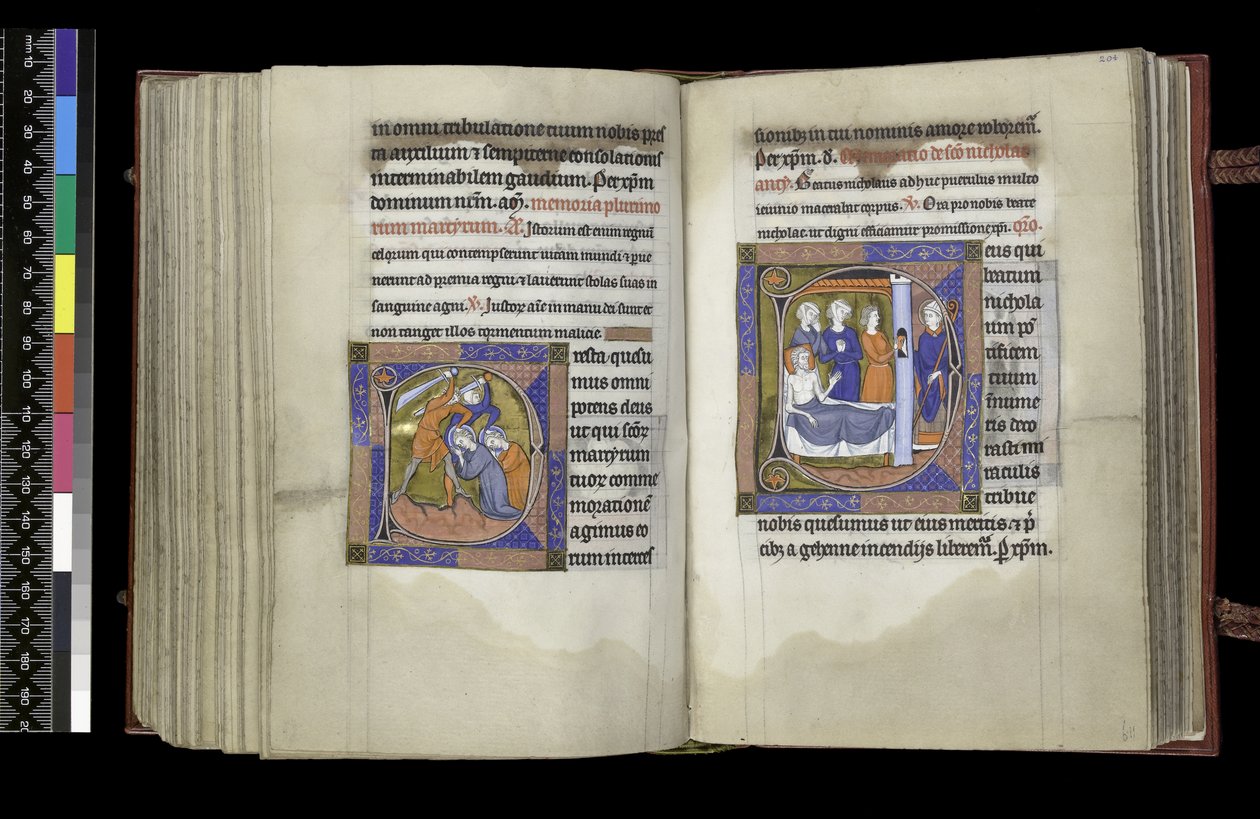 mm 10 20 30 40 50 60 70 80 90 100 110 120 130 140 150 160 170 180 190
in omni tribulatione tuum nobis pres
ta auxilium ⁊ sempiterne consolationis
interminabilem gaudium. Per xp̄m
dominum nr̄m. am̄. memoria plurimo
rum martyrum. Istorum est enim regnū
celorum qui contempserunt uitam mundi ⁊ pue
nerunt ad premia regni ⁊ lauerunt stolas suas in
sanguine agni. V̄. Iustor aīe in manu dei sunt et
non tanget illos tormentum malicie.
resta quesu
mus omni
potens deus
ut qui scōr
martyrum
tuor comme
morationē
agimus eo
rum interces
204
sionibz in tui nominis amore roborem̄.
Per xp̄m. d. Commemoratio de sc̄o nicholao
ant̄. Beatus nicholaus adhuc puerulus multo
ieiunio macerabat corpus. V̄. Ora pro nobis beate
nicholae. ut digni efficiamur promissione xp̄i. or̄o.
eus qui
beatum
nichola
um pō
tificem
tuum
īnume
ris deco
rasti mi
raculis
tribue
nobis quesumus ut eius meritis. ⁊ p̄
cibz a gehenne incendijs liberem̄. P xp̄m.